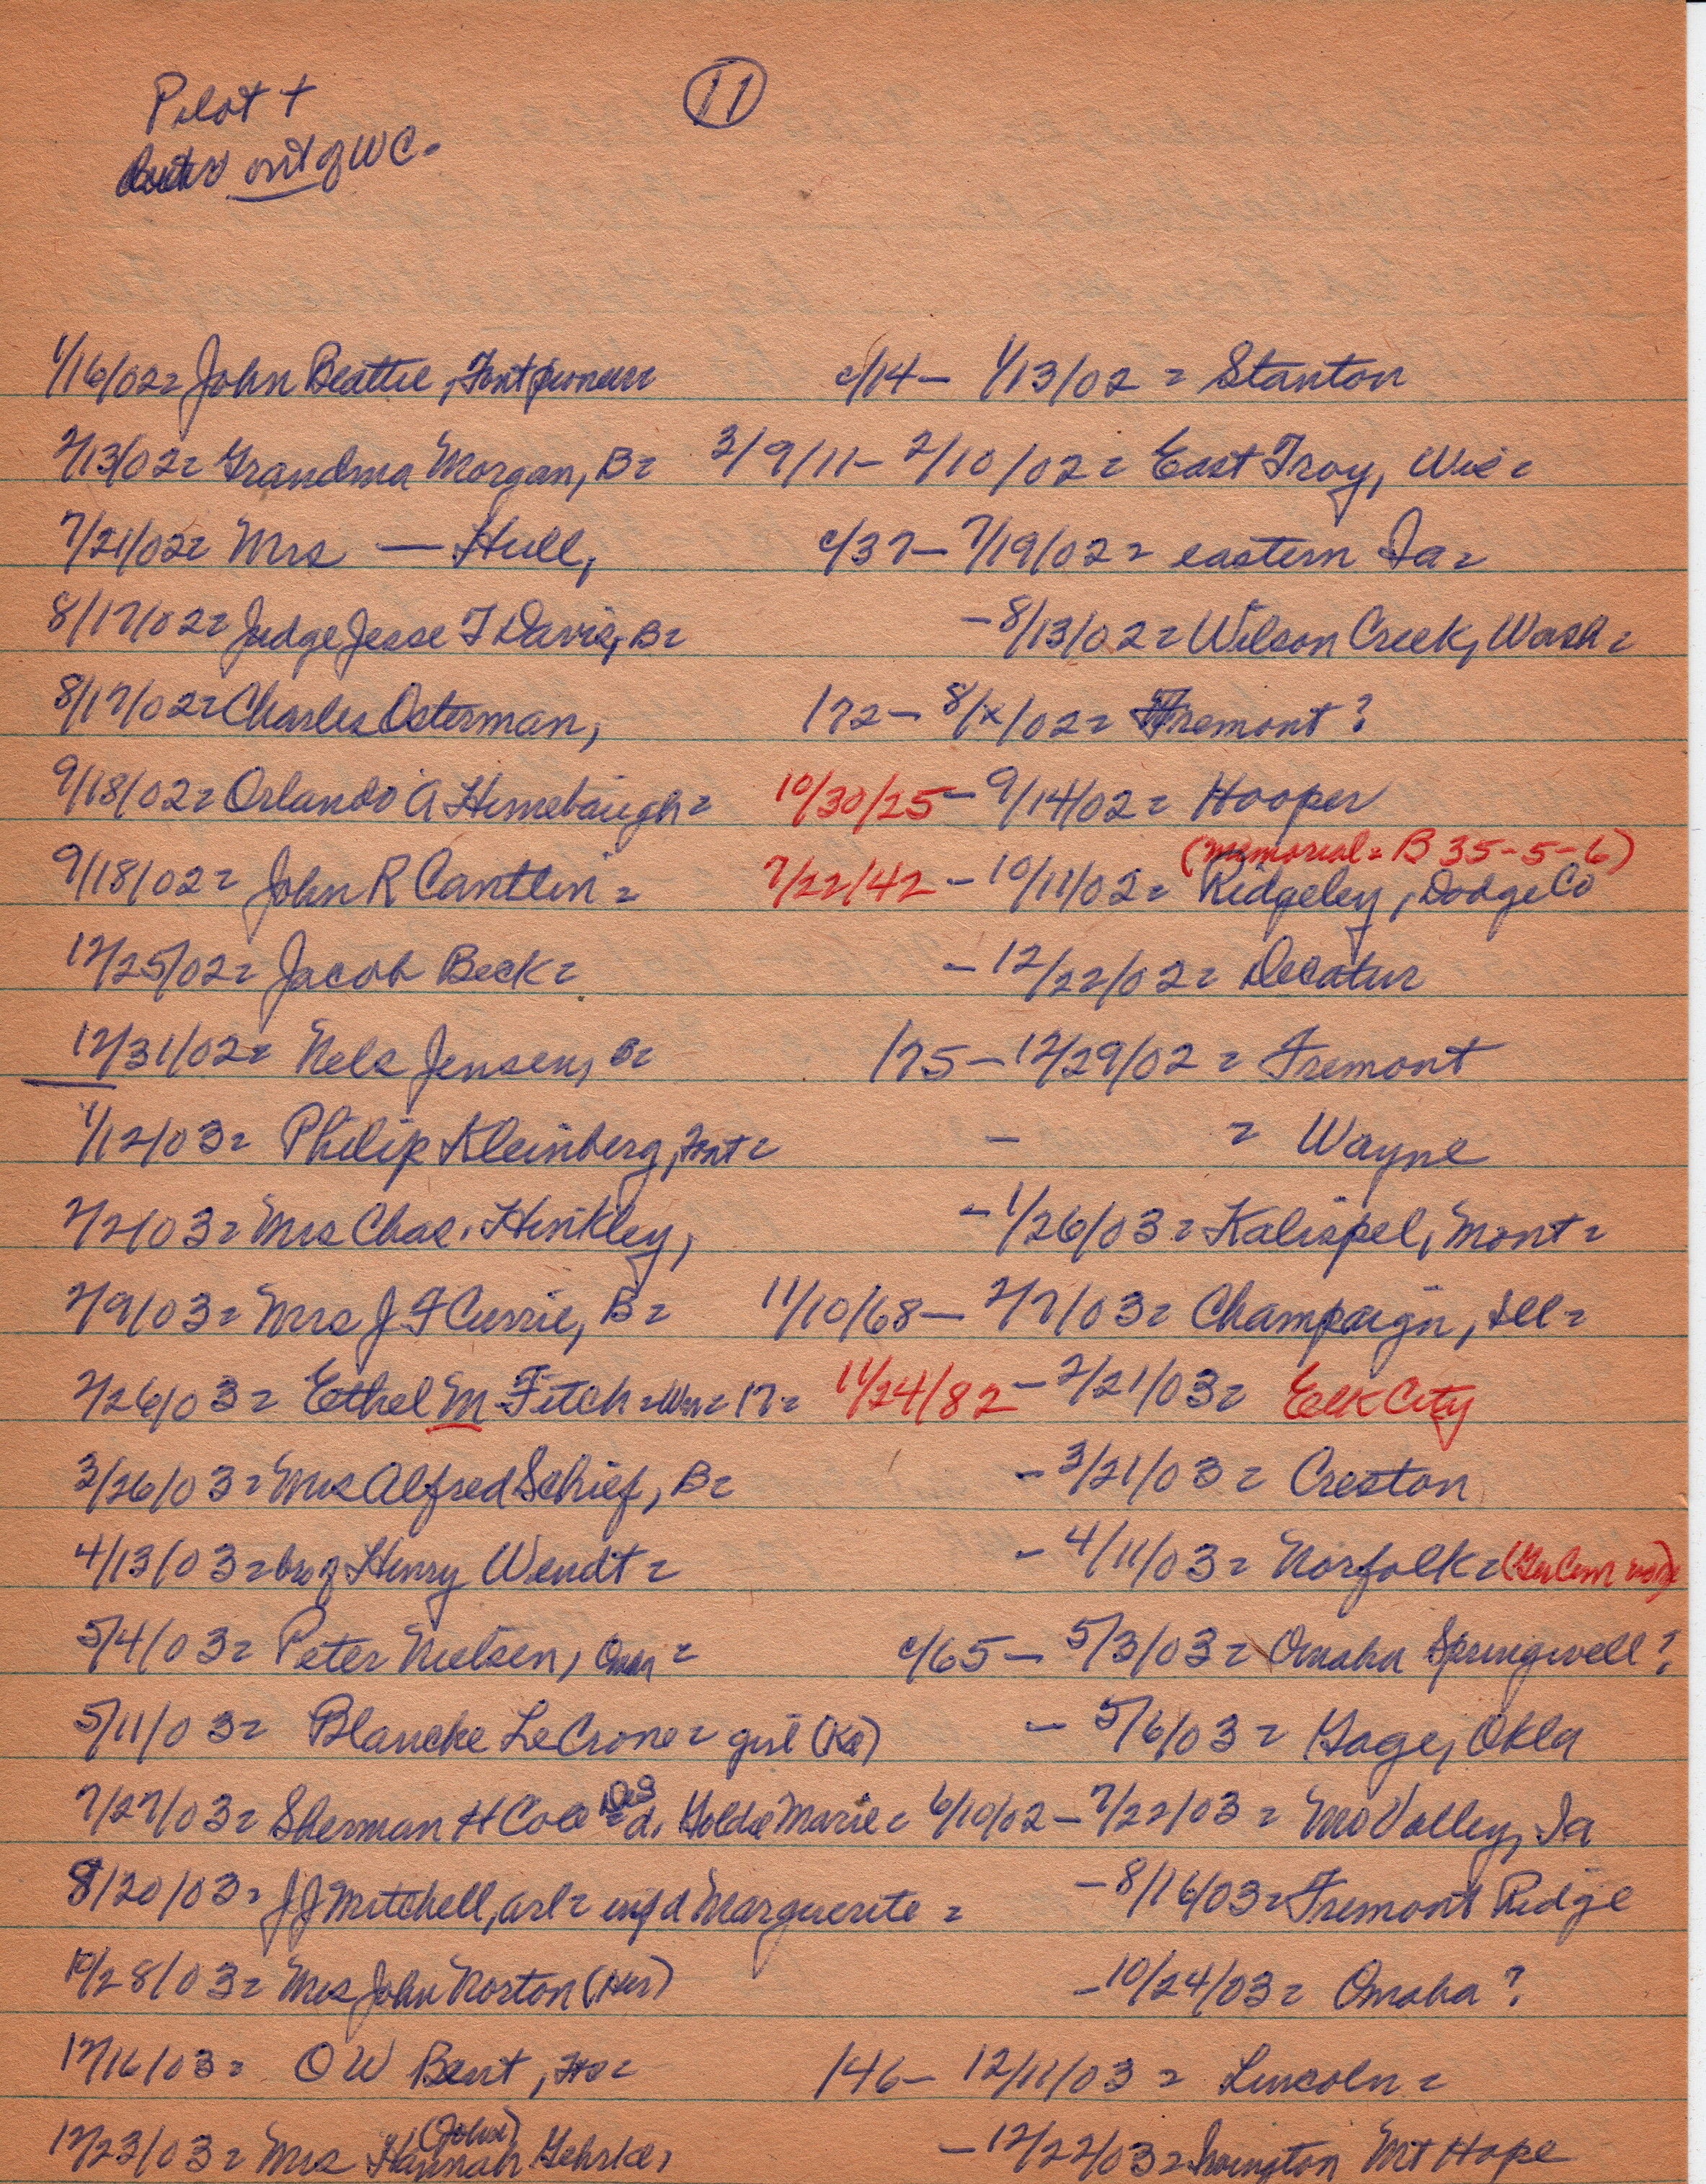 Pilot +
out of WC.
11
1/16/02= John Beattie, Fmt pioneer c/14 - 1/13/02 = Stanton
2/13/02= Grandma Morgan, B= 3/9/11- 2/10/02= East Troy, Wis=
7/21/02= Mrs — Hull, c/37- 7/19/02= eastern Ia=
8/17/02= Judge Jesse T Davis, B= -8/13/02= Wilson Creek, Wash=
8/17/02= Charles Osterman, /72- 8/x/02= Fremont?
9/18/02= Orlando A Himebaugh= 10/30/25- 9/14/02= Hooper
(memorial= B 35-5-6)
9/18/02= John R Cantlin= 7/22/42 - 10/11/02= Ridgeley, Dodge Co
12/25/02= Jacob Beck= -12/22/02= Decatur
12/31/02= Nels Jensen, B= /75-12/29/02= Fremont
1/12/03= Philip Kleinberg, Fmt= - = Wayne
2/2/03= Mrs Chas. Hinkley, -1/26/03= Kalispel, Mont=
2/9/03= Mrs J F Currie, B= 11/10/68- 2/7/03= Champaign, Ill=
2/26/03= Ethel M Fitch = Wm= 17= 11/24/82- 2/21/03= Elk City
3/26/03= Mrs Alfred Schief, B= -3/21/03= Creston
4/13/03= bro of Henry Wendt= - 4/11/03= Norfolk=
5/4/03= Peter Nielsen, Oma= c/65- 5/3/03= Omaha Springwell?
5/11/03= Blancke LeCrone= girl (Ke) - 5/6/03= Gage, Okla
7/27/03= Sherman H Cole DeS =d. Golda Marie= 6/10/02-7/22/03= Mo Valley, Ia
8/20/03= J J Mitchell, arl= inf d Marguerite= -8/16/03= Fremont Ridge
10/28/03= Mrs John Norton (Her) -10/24/03= Omaha?
12/16/03= O W Bent, Ho= /46- 12/11/03= Lincoln=
12/23/03= Mrs (John) Hannah Gehrke, -12/22/03= Irvington Mt Hope